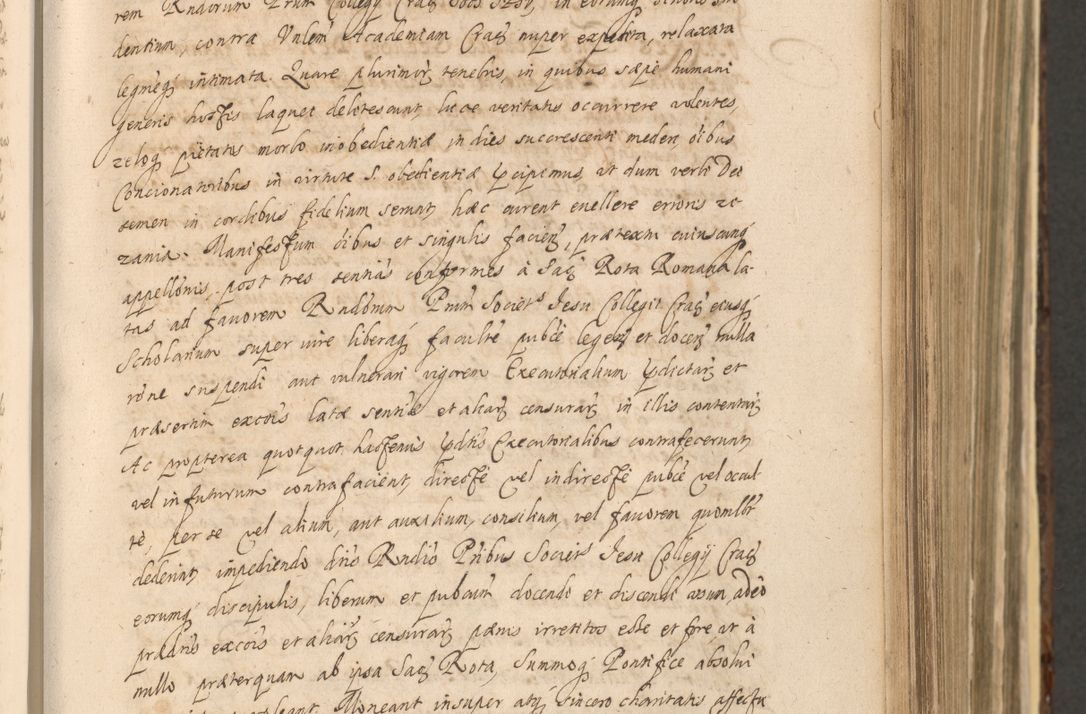 rem Rndorum Prum Collegij Crac̄ Soc̄s Jesu, in eorumq́ studiis
dentium, contra Vnlem Academiam Crac̄ nuper expedita, relaxata
legmeq́ intimata. Quare plurimor̄ tenebris, in quibus sæpe humani
generis hostis laquei delitescunt, luce veritatis occurrere volentes,
zeloq́ pietatis morbo inobedientiæ indies succrescenti meden, oībus
Concionatoribus in virtute S. obedientiæ p̄cipimus, vt dum verbi Dei
semen in cordibus fidelium serunt, hæc curent euellere erroris ze
zania. Manifestum oībus et singulis facien̄, prætextu cuiuscunq́
appellōnis, post tres sentiās conformes à Sac̄ Rota Romana la-
tas ad fauorem Rndorum Prum Societs Jesu Collegii Crac̄ eiusq́
Scholarium super iure liberaq́ facultē publcē legen̄ et docen̄ nulla
rōne suspendi aut vulnerari vigorem Executorialium p̄dictar̄ et
præsertim excōis latæ sentiæ et aliar̄ censurar̄ in illis contentar̄
Ac propterea quotquot hactenus p̄dtis Executorialibus contrafecerunt,
vel in futurum contrafacient, directè vel indirectè publcè vel occul
tè, per se vel alium, aut auxilium, consilium, vel fauorem quomlbt
dederint, impediendo dtis Rndis Pribus Societs Jesu Collegij Crac̄
eorumq́ discipulis, liberum et publcum docendi et discendi vsum, adeò
prædtis excōis et aliar̄ censurar̄ pænis irretitos esse et fore, vt à
nullo præterquam ab ipsa Sac̄ Rota, Summoq́ Pontifice absolui
Moneant insuper atq́ sincero charitatis affectu